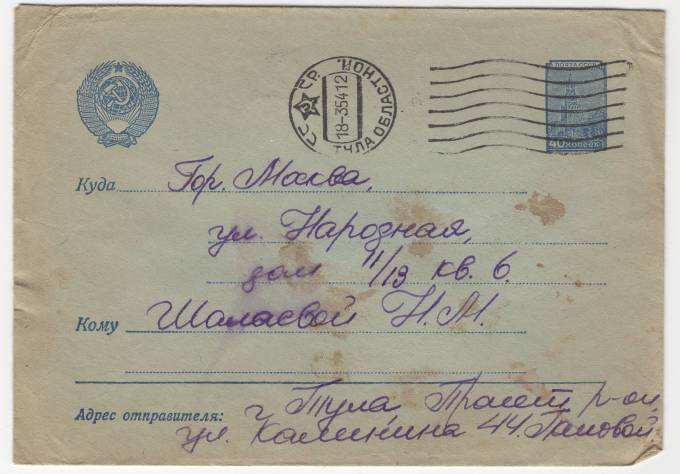 СССР 18-3 54 12 ТУЛА ОБЛАСТНОЙ
ПОЧТА СССР
40 КОПЕЕК
Куда Гор. Москва,
ул. Народная,
дом 11/13 кв. 6.
Кому Шалаевой Н.М.
Адрес отправителя: г. Тула р-он,
ул. Калинина 44.